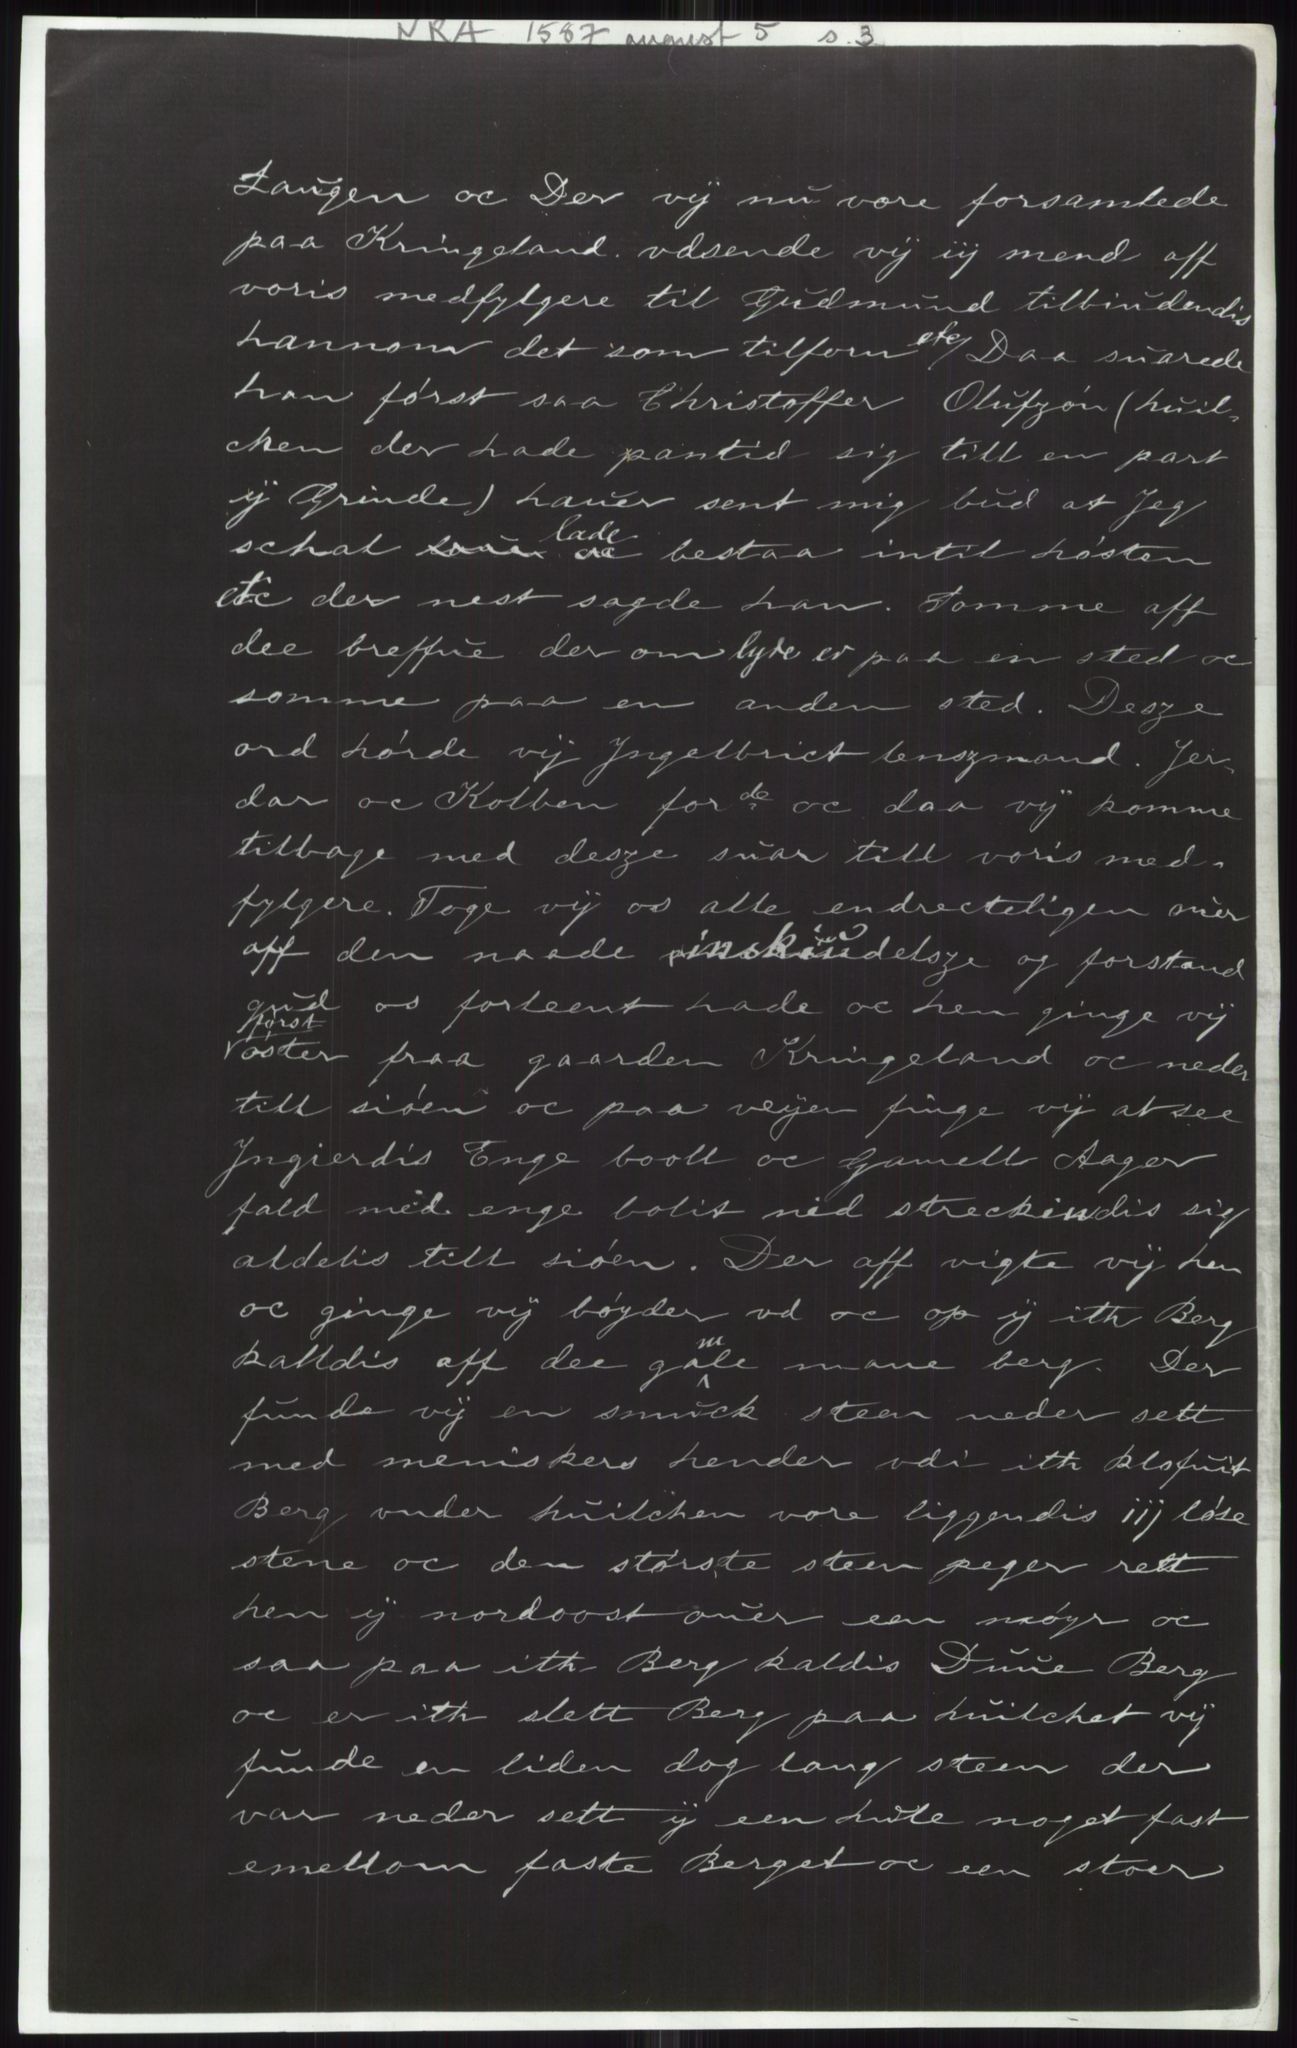 NRA 1587 august 5 s. 3
Laugen oc Der vÿ nu vore forsamlede
paa Kringeland. vdsende vÿ iij mend aff
voris medfylgere til Gudmund tilbiudendis
hannom det som tilforn etc/ Daa suarede
han først saa Christoffer Olufzøn (huil-
chen der hade pantid sig till en part
ÿ Grinde) hauer sent mig bud at Jeg
schal lade bestaa intil høsten
etc der nest sagde han. Somme aff
dee breffue der om lyde er paa en sted oc
somme paa en anden sted. Desze
ord hørde vÿ Jngelbrict lenszmand. Jer-
dar oc Kolben forde oc daa vÿ komme
tilbage med desze suar till voris med-
fylgere. Toge vÿ os alle endrecteligen mer
aff den naade inskiudelsze og forstand
gud os forleent hade oc hen ginge vÿ
først
øster fraa gaarden Kringeland oc neder
till siøen oc paa veÿen finge vÿ at see
Jngierdis Enge booll oc Gamell Aager
fald med enge bolit nid streckindis sig
aldelis till siøen. Der aff vigte vÿ hen
oc ginge vÿ bøyder vd oc op ÿ ith Berg
kalldis aff dee gamle mane berg. Der
funde vÿ en smuck steen neder sett
med meniskers hender vdi ith klofuit
Berg vnder huilchen vore liggendis iij løse
stene oc den største steen peger rett
hen ÿ nordoost ouer een møyr oc
saa paa ith Berg kaldis Duue Berg
oc er ith slett Berg paa huilchet vÿ
funde en liden dog lang steen der
var neder sett ÿ een hule noget fast
emellom faste Berget oc een stoer